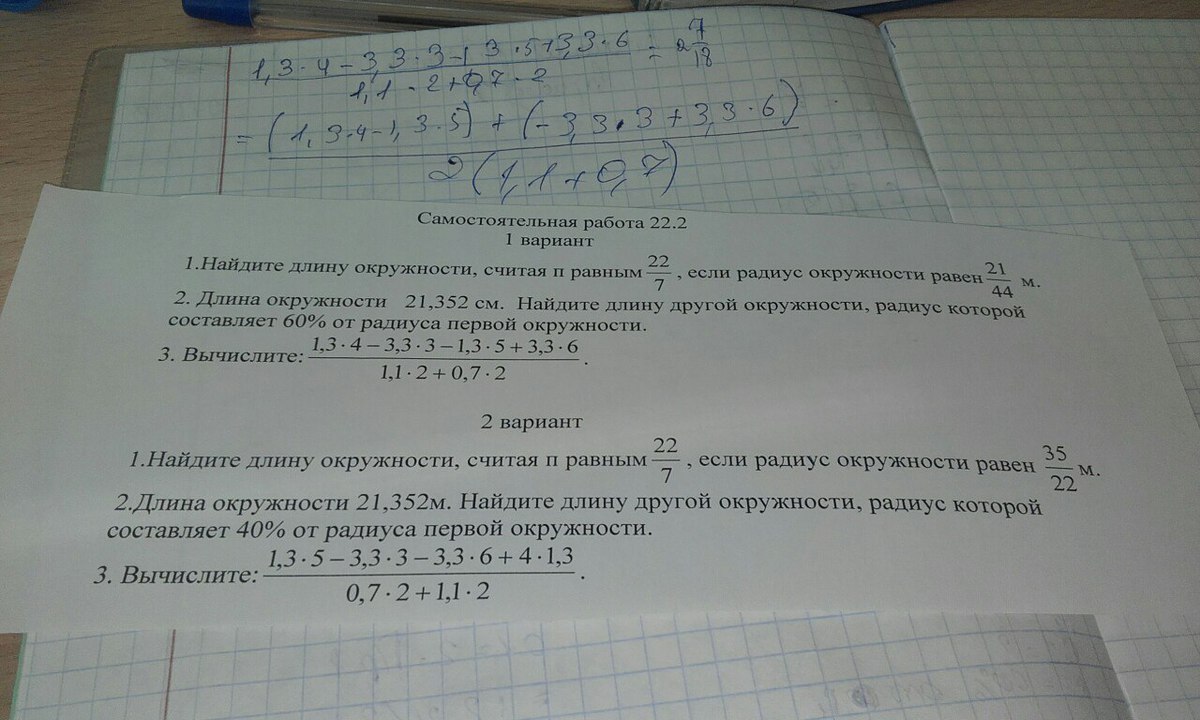 1,3·4-3,3·3-1 3·5+3,3·6 / 1,1·2+0,7·2 = 2 7/18
= (1,3·4-1,3·5)+(-3,3·3+3,3·6) / 2(1,1+0,7)
Самостоятельная работа 22.2
1 вариант
1.Найдите длину окружности, считая п равным 22/7 , если радиус окружности равен 21/44 м.
2. Длина окружности 21,352 см. Найдите длину другой окружности, радиус которой
составляет 60% от радиуса первой окружности.
3. Вычислите: 1,3·4−3,3·3−1,3·5+3,3·6 / 1,1·2+0,7·2 .
2 вариант
1.Найдите длину окружности, считая п равным 22/7 , если радиус окружности равен 35/22 м.
2.Длина окружности 21,352м. Найдите длину другой окружности, радиус которой
составляет 40% от радиуса первой окружности.
3. Вычислите: 1,3·5−3,3·3−3,3·6+4·1,3 / 0,7·2+1,1·2 .